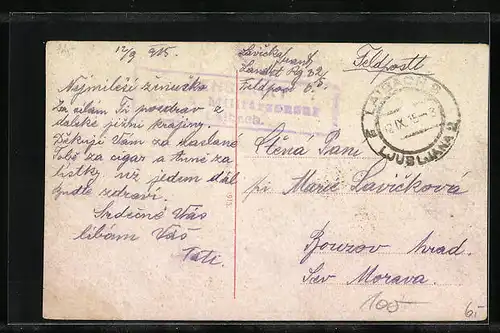 12/9 915.
Lavička
Landst Rg 32/5
Feldpost 
Feldpost
LAIBACH 2
IX. 15
LJUBLJANA 2
Militärzensur
Laibach
Nejmilejší ženuško
Zasílám Ti pozdrav z
daleké jižní krajiny.
Děkuji Vám za zaslané
Tobě za cigar a Anně za
lístky už jedem dál
buďte zdraví.
Srdečně Vás
líbám Váš
Táti.
Ctěná Paní
pí Marie Lavičková
Bouzov hrad.
Sev Morava.
100
6.-